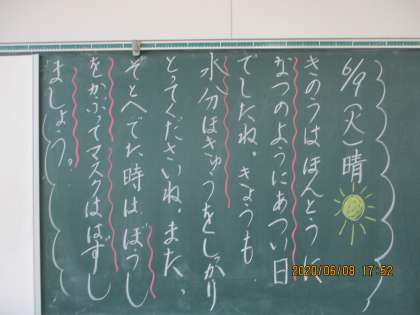 6/9(火)晴
きのうはほんとうに
なつのようにあつい日
でしたね。きょうも
水分ほきゅうをしっかり
とってくださいね。また、
そとへでた時は、ぼうし
をかぶってマスクははずし
ましょう。
2020/06/08 17:52